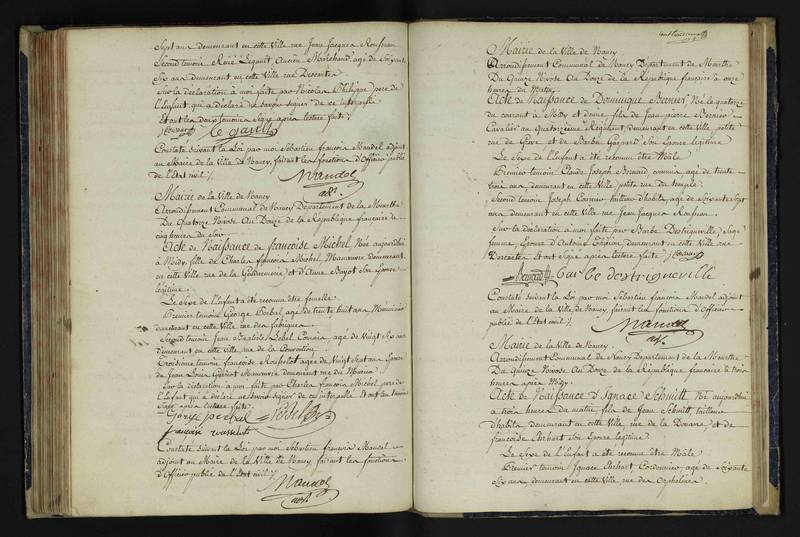 Sept ans demeurant en cette Ville rue Jean Jacques Rousseau
Second temoin René Ancien Marchand, agé de Soixante
Six ans demeurant en cette Ville rue Descartes
Sur la déclaration à moi faite par Nicolas Philippe pere de
l'Enfant qui a déclaré ne savoir signer de ce interpellé
Et ont les deux temoins Signé après lecture faite
Constaté suivant la Loi par moi Sébastien françois Mandel adjoint
au Maire de la Ville de Nancy, faisant les fonctions d'Officier public
de l'Etat civil
Mandel
adj.
Mairie de la Ville de Nancy
Arrondissement Communal de Nancy Département de la Meurthe
Du Quatorze Nivose An Douze de la République française à
cinq heures du Soir
Acte de Naissance de françoise Michel, Née aujourdhui
à Midy, fille de Charles françois Michel Manœuvre demeurant
en cette Ville rue de la et d'Anne son Epouse
légitime.
Le Sexe de l'Enfant a été reconnu être femelle.
Premier temoin George agé de trente huit ans Menuisier
demeurant en cette Ville rue des fabriques.
Second temoin Jean agé de Vingt Six ans
demeurant en cette Ville rue de la Convention
Troisieme temoin françoise agée de Vingt Sept ans Epouse
de Jean Louis Manœuvre demeurant rue du
Sur la déclaration à moi faite par Charles françois Michel pere de
l'Enfant qui a déclaré ne savoir signer de ce interpellé. Et ont les temoins
Signé après lecture faite
françoise
Constaté suivant la Loi par moi Sébastien françois Mandel
adjoint au Maire de la Ville de Nancy faisant les fonctions
d'Officier public de l'Etat civil
Mandel
adj.
Mairie de la Ville de Nancy
Arrondissement Communal de Nancy Département de Meurthe
Du Quinze Nivose An Douze de la République française à onze
heures du Matin
Acte de Naissance de Dominique Bernier, Né le quatorze
du courant à Midy et demi fils de Jean pierre Bernier
Cavalier au Quatorzieme Régiment, demeurant en cette Ville petite
rue de Greve et de Barbe Gaspard Son Epouse légitime
Le Sexe de l'Enfant a été reconnu être Mâle
Premier temoin Claude Joseph Bernard, commis agé de trente
trois ans demeurant en cette Ville petite rue du temple.
Second temoin Joseph tailleur d'habits, agé de Soixante Sept
ans demeurant en cette Ville rue Jean Jacques Rousseau.
Sur la déclaration à moi faite par Barbe Destrigneville, Sage
femme, Epouse d'Antoine demeurant en cette Ville rue
Descartes Et ont Signé après lecture faite
Bernard barbe destrigneville
Constaté suivant la Loi par moi Sébastien françois Mandel adjoint
au Maire de la Ville de Nancy, faisant les fonctions d'Officier
public de l'Etat civil
Mandel
adj.
Mairie de la Ville de Nancy.
Arrondissement Communal de Nancy Département de la Meurthe
Du Quinze Nivose An Douze de la République française à trois
heures après Midy.
Acte de Naissance d'Ignace Schmitt, Né aujourdhui
à trois heures du matin, fils de Jean Schmitt, tailleur
d'habits demeurant en cette Ville, rue de la Douane et de
françoise Erhart Son Epouse légitime.
Le Sexe de l'Enfant a été reconnu être Mâle
Premier temoin Ignace Erhart, Cordonnier agé de Soixante
Six ans, demeurant en cette Ville rue des Orphelines